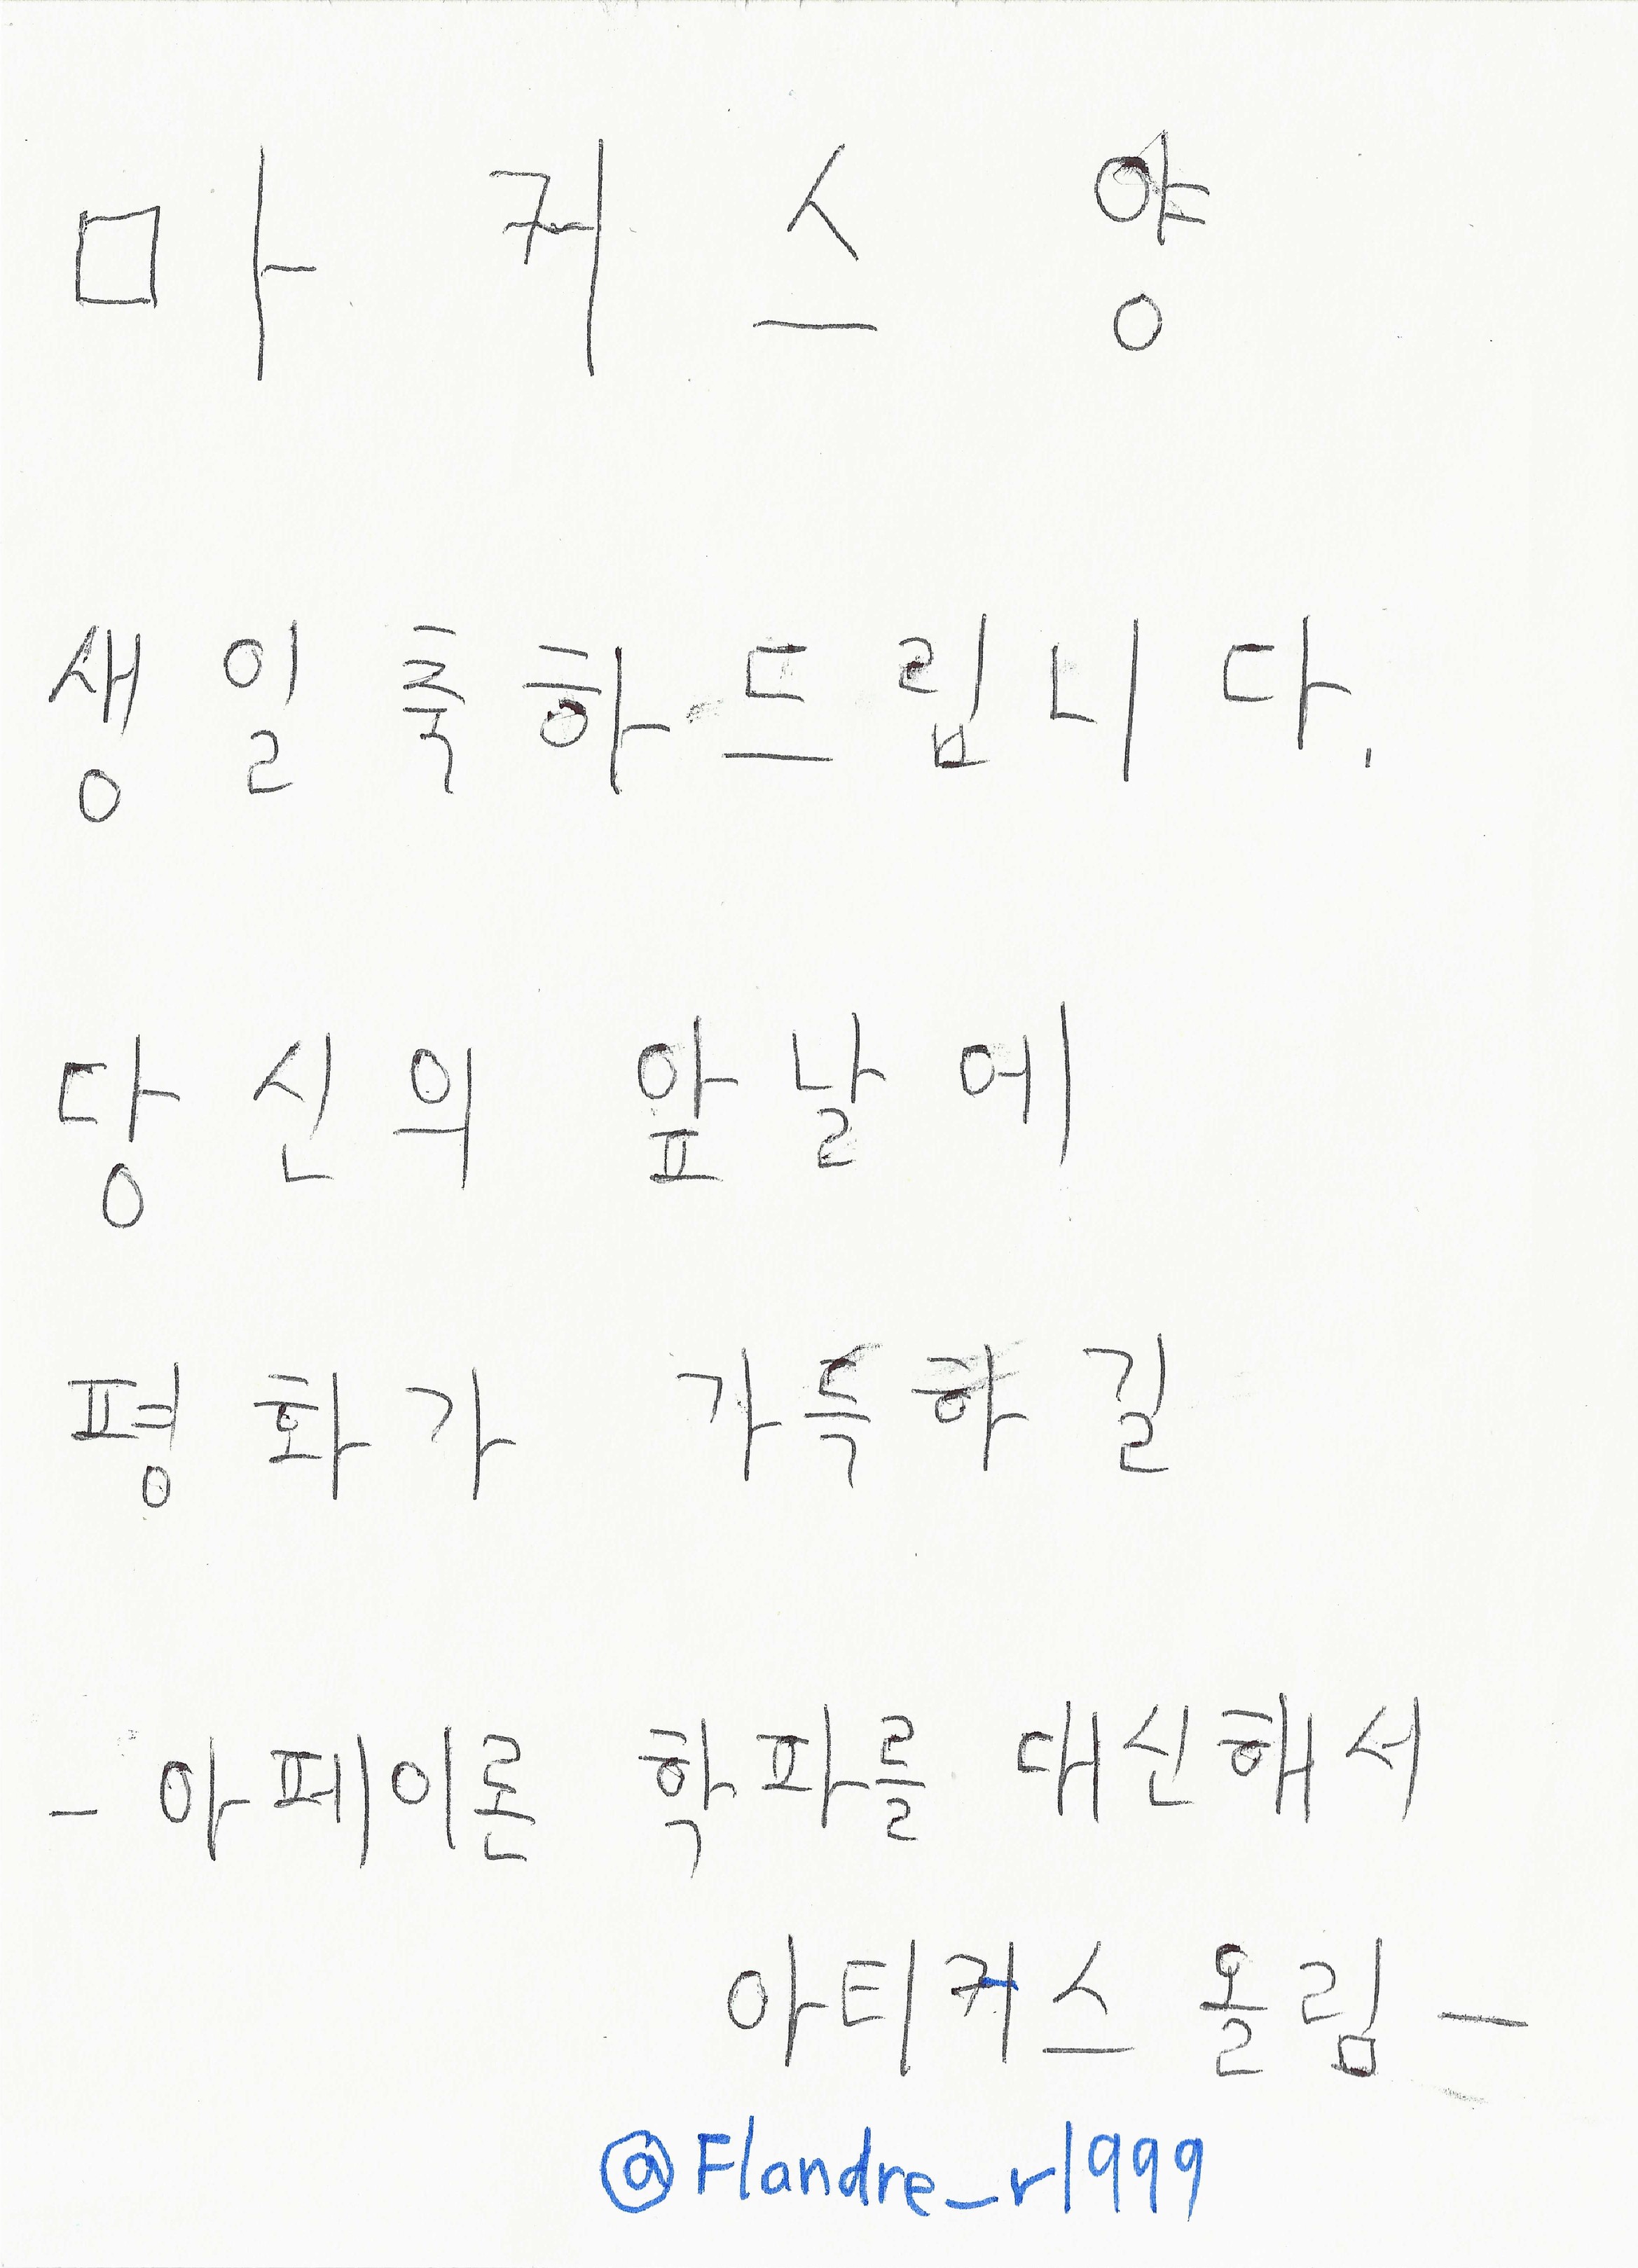 마커스 양
생일 축하 드립니다.
당신의 앞날에
평화가 가득하길
- 아페이론 학파를 대신해서
아티커스 올림 -
@Flandre_r1999